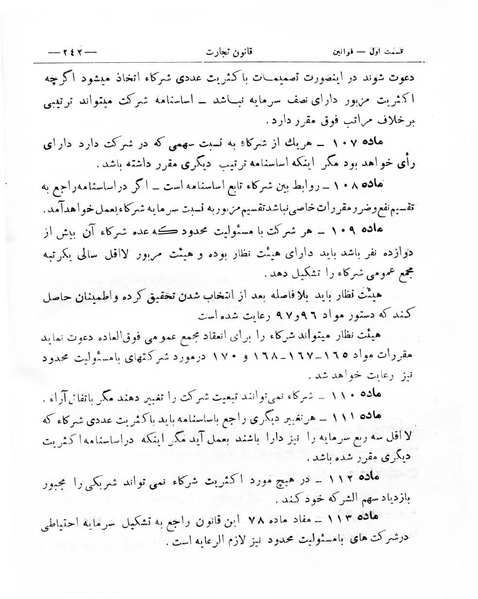 قسمت اول — قوانین
قانون تجارت
—۲۴۲—
دعوت شوند در اینصورت تصمیمات باکثریت عددی شرکاء اتخاذ میشود اگرچه
اکثریت مزبور دارای نصف سرمایه نباشد ــ اساسنامه شرکت میتواند ترتیبی
برخلاف مراتب فوق مقرر دارد.
ماده ۱۰۷ ــ هریك از شرکاء به نسبت سهمی که در شرکت دارد دارای
رأی خواهد بود مگر اینکه اساسنامه ترتیب دیگری مقرر داشته باشد.
ماده ۱۰۸ ــ روابط بین شرکاء تابع اساسنامه است ــ اگر در اساسنامه راجع به
تقسیم نفع و ضرر مقررات خاصی نباشد تقسیم مزبور به نسبت سرمایه شرکاء بعمل خواهد آمد.
ماده ۱۰۹ ــ هر شرکت با مسئولیت محدود که عده شرکاء آن بیش از
دوازده نفر باشد باید دارای هیئت نظار بوده و هیئت مزبور لااقل سالی یکرتبه
مجمع عمومی شرکاء را تشکیل دهد.
هیئت نظار باید بلافاصله بعد از انتخاب شدن تحقیق کرده و اطمینان حاصل
کند که دستور مواد ۹۶ و ۹۷ رعایت شده است
هیئت نظار میتواند شرکاء را برای انعقاد مجمع عمومی فوق‌العاده دعوت نماید
مقررات مواد ۱۶۵-۱۶۷-۱۶۸ و ۱۷۰ درمورد شرکتهای بامسئولیت محدود
نیز رعایت خواهد شد.
ماده ۱۱۰ ــ شرکاء نمی‌توانند تبعیت شرکت را تغییر دهند مگر باتفاق آراء.
ماده ۱۱۱ ــ هر تغییر دیگری راجع باساسنامه باید باکثریت عددی شرکاء که
لااقل سه ربع سرمایه را نیز دارا باشند بعمل آید مگر اینکه در اساسنامه اکثریت
دیگری مقرر شده باشد.
ماده ۱۱۲ ــ در هیچ مورد اکثریت شرکاء نمی تواند شریکی را مجبور
بازدیاد سهم الشرکه خود کند.
ماده ۱۱۳ ــ مفاد ماده ۷۸ این قانون راجع به تشکیل سرمایه احتیاطی
درشرکت های بامسئولیت محدود نیز لازم الرعایه است.